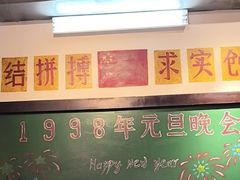 结拼搏 求实创
1998年元旦晚会
Happy New Year